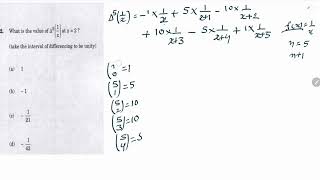 2. What is the value of Δ⁵(1/x) at x = 2 ?
(take the interval of differencing to be unity)
(a) 1
(b) - 1
(c) - 1/21
(d) - 1/42
Δ⁵(1/x) = -1 × 1/x + 5 × 1/x+1 - 10 × 1/x+2
+ 10 × 1/x+3 - 5 × 1/x+4 + 1 × 1/x+5
f(x) = 1/x
n = 5
n+1
(5 0) = 1
(5 1) = 5
(5 2) = 10
(5 3) = 10
(5 4) = 5